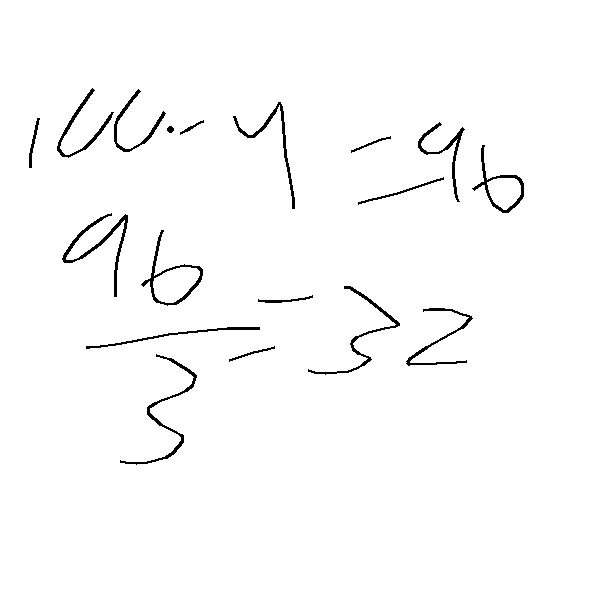 100 - 4 = 96
96/3 = 32